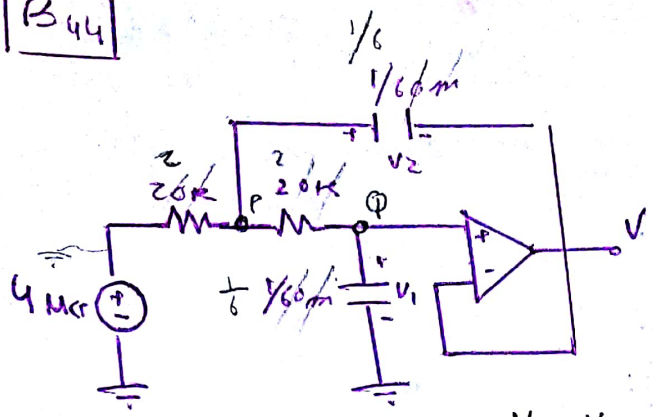 B44
1/6
1/60m
+ -
V2
2
20k
P
2
20k
Q
+
-
V
4
+
-
1/6
1/60m
+
V1
-